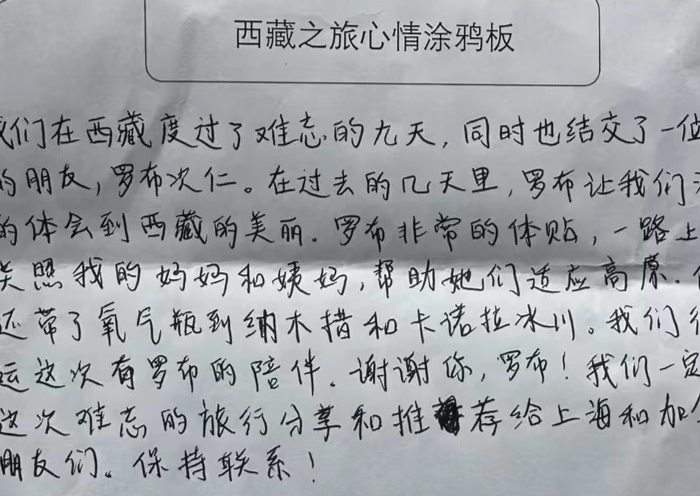 西藏之旅心情涂鸦板
我们在西藏度过了难忘的九天,同时也结交了一位
的朋友,罗布次仁。在过去的几天里,罗布让我们
的体会到西藏的美丽。罗布非常的体贴,一路上
关照我的妈妈和姨妈,帮助她们适应高原。
还带了氧气瓶到纳木措和卡诺拉冰川。我们
运这次有罗布的陪伴。谢谢你,罗布!我们一定
这次难忘的旅行分享和推荐给上海和加
朋友们。保持联系!